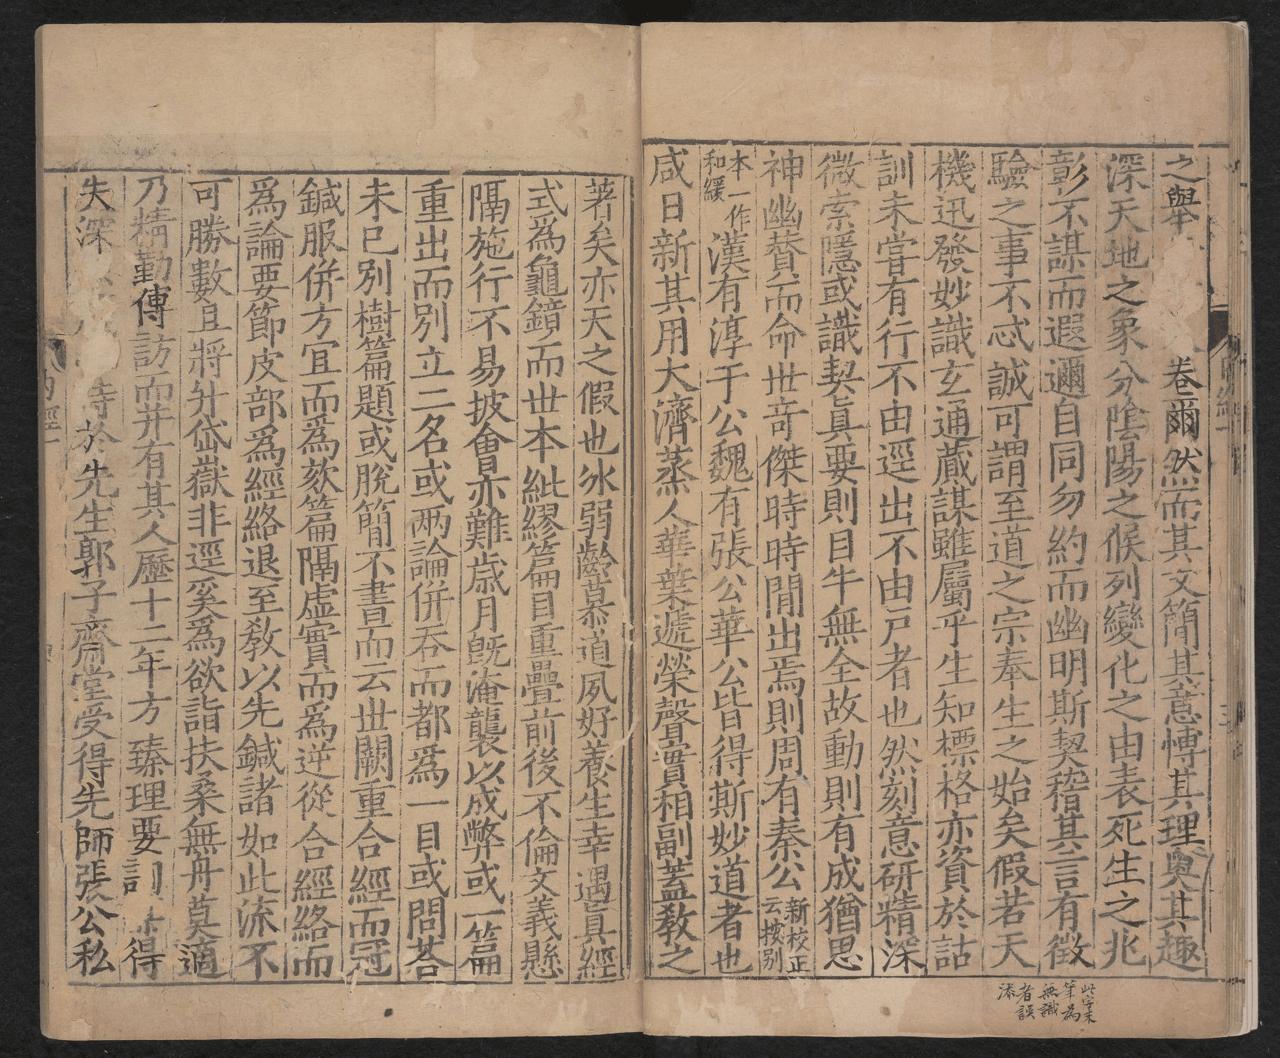 之舉卷爾然而其文簡其意愽其理奧其趣
深天地之象分陰陽之候列變化之由表死生之兆
彰不謀而遐邇自同勿約而幽明斯契稽其言有徵
驗之事不忒誠可謂至道之宗奉生之始矣假若天
機迅發妙識玄通蕆謀雖屬乎生知標格亦資於詁
訓未嘗有行不由逕出不由戶者也然刻意研精深
微索隱或識契眞要則目牛無全故動則有成猶思
神幽賛而命世奇傑時時間出焉則周有秦公新校正云按别
本一作和緩漢有淳于公魏有張公華公皆得斯妙道者也
咸日新其用大濟蒸人華葉遞榮聲實相副蓋敎之
著矣亦天之假也氷弱齡慕道夙好養生幸遇眞經
式爲龜鏡而世本紕繆篇目重疊前後不倫文義懸
隔施行不易披會亦難歲月旣淹襲以成弊或一篇
重出而别立二名或两論併吞而都爲一目或問荅
未已别樹篇題或脫簡不書而云世闕重合經而冠
鍼服併方宜而爲欬篇隔虛實而爲逆從合經絡而
爲論要節皮部爲經絡退至敎以先鍼諸如此流不
可勝數且將升岱嶽非逕奚爲欲詣扶桑無舟莫適
乃精勤傳訪而并有其人歷十二年方臻理要訓得
失深時於先生郭子齋堂受得先師張公私
此字末
筆爲
無識
者誤
添
内經一